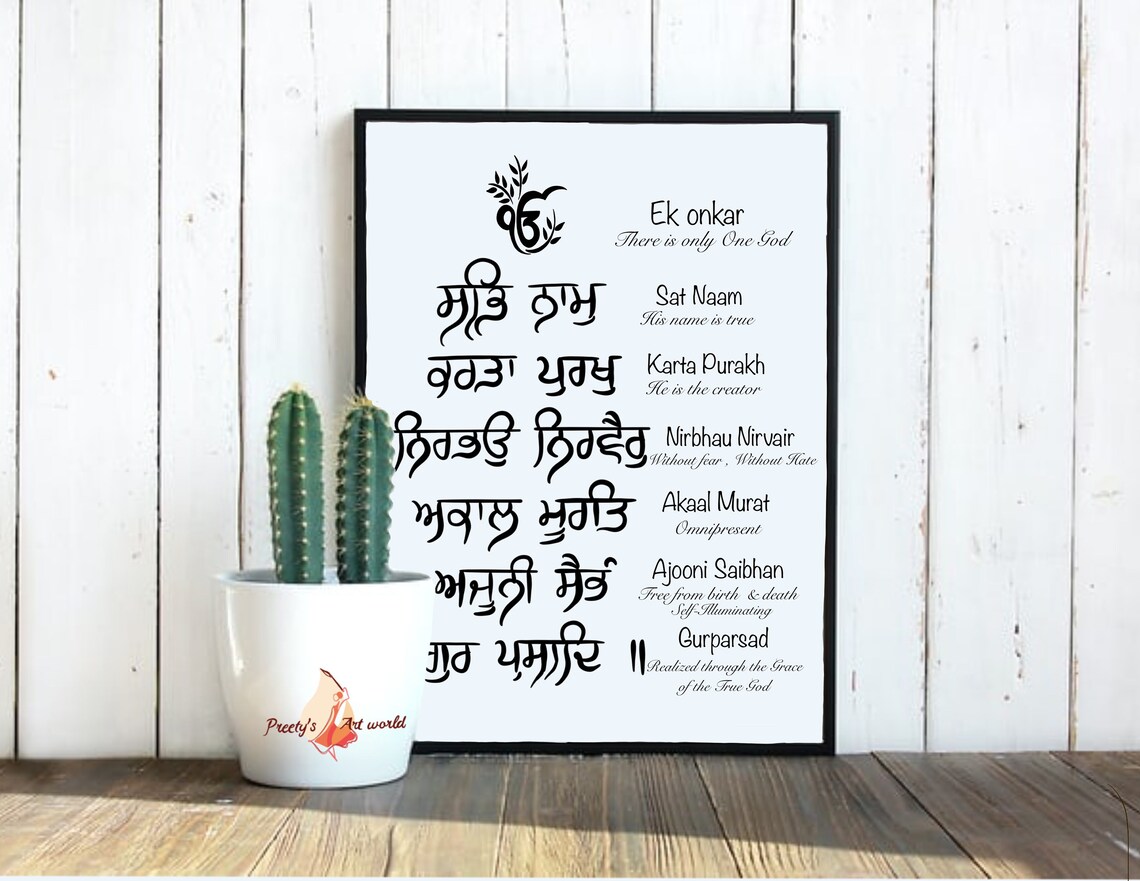 ੴ
Ek onkar
There is only One God
ਸਤਿ ਨਾਮੁ
Sat Naam
His name is true
ਕਰਤਾ ਪੁਰਖੁ
Karta Purakh
He is the creator
ਨਿਰਭਉ ਨਿਰਵੈਰੁ
Nirbhau Nirvair
Without fear , Without Hate
ਅਕਾਲ ਮੂਰਤਿ
Akaal Murat
Omnipresent
ਅਜੂਨੀ ਸੈਭੰ
Ajooni Saibhan
Free from birth & death
Self-Illuminating
ਗੁਰ ਪ੍ਰਸਾਦਿ ॥
Gurparsad
Realized through the Grace
of the True God
Preety's Art world